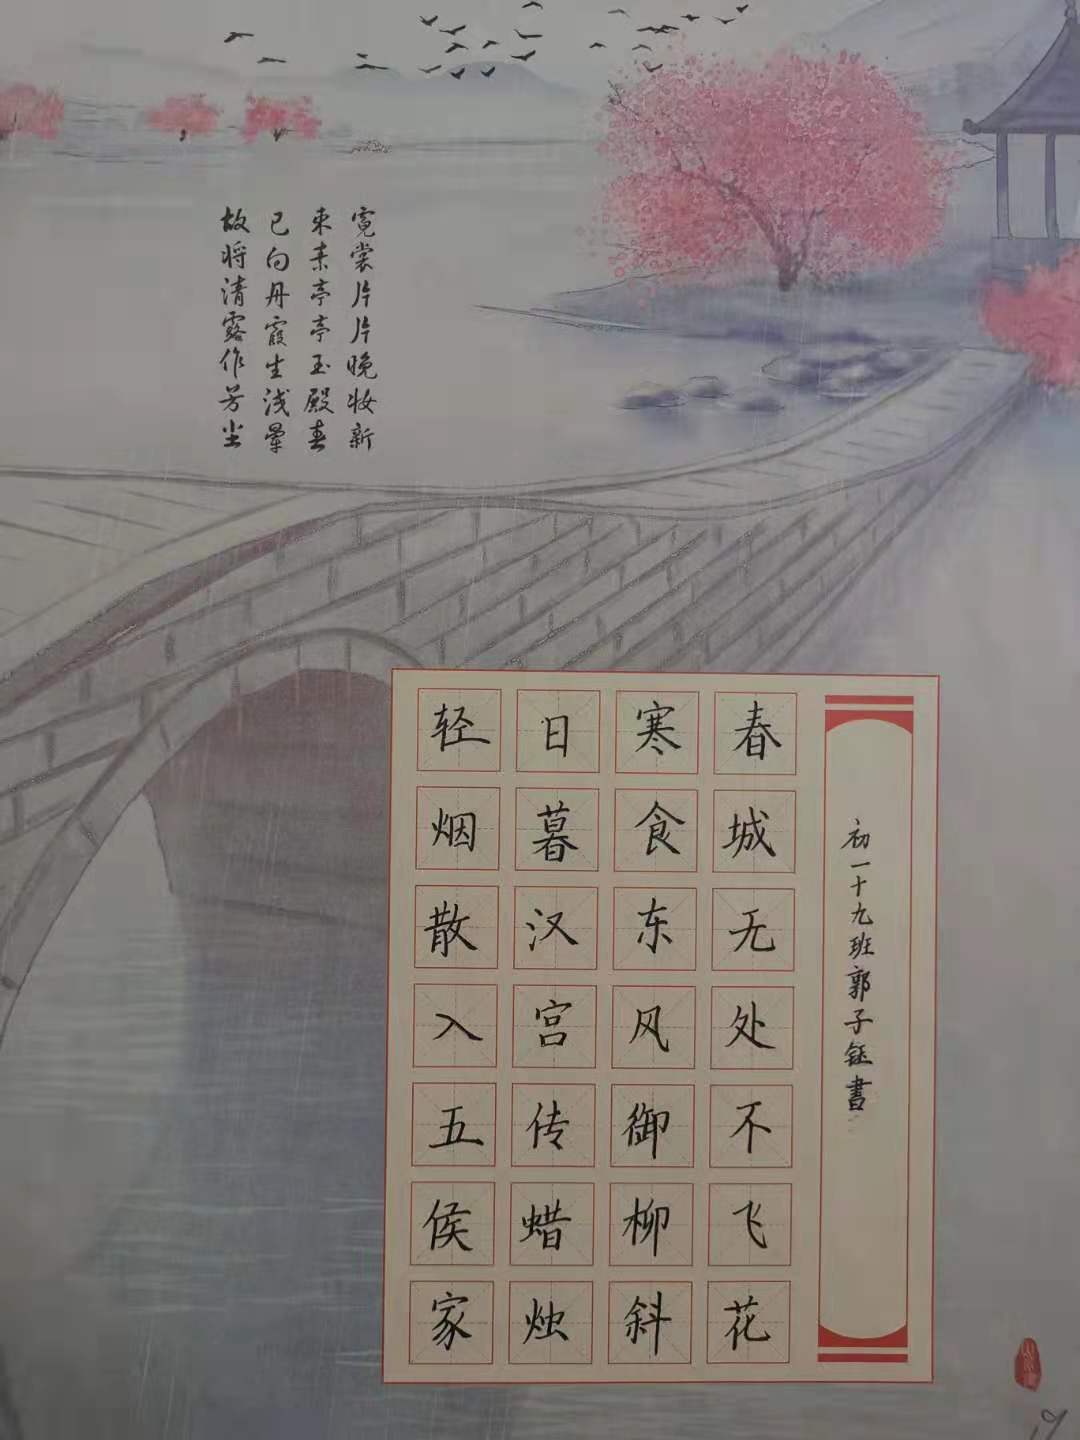 霓裳片片晚妆新
束素亭亭玉殿春
已向丹霞生浅晕
故将清露作芳尘
初一十九班郭子钰書
春城无处不飞花
寒食东风御柳斜
日暮汉宫传蜡烛
轻烟散入五侯家
19